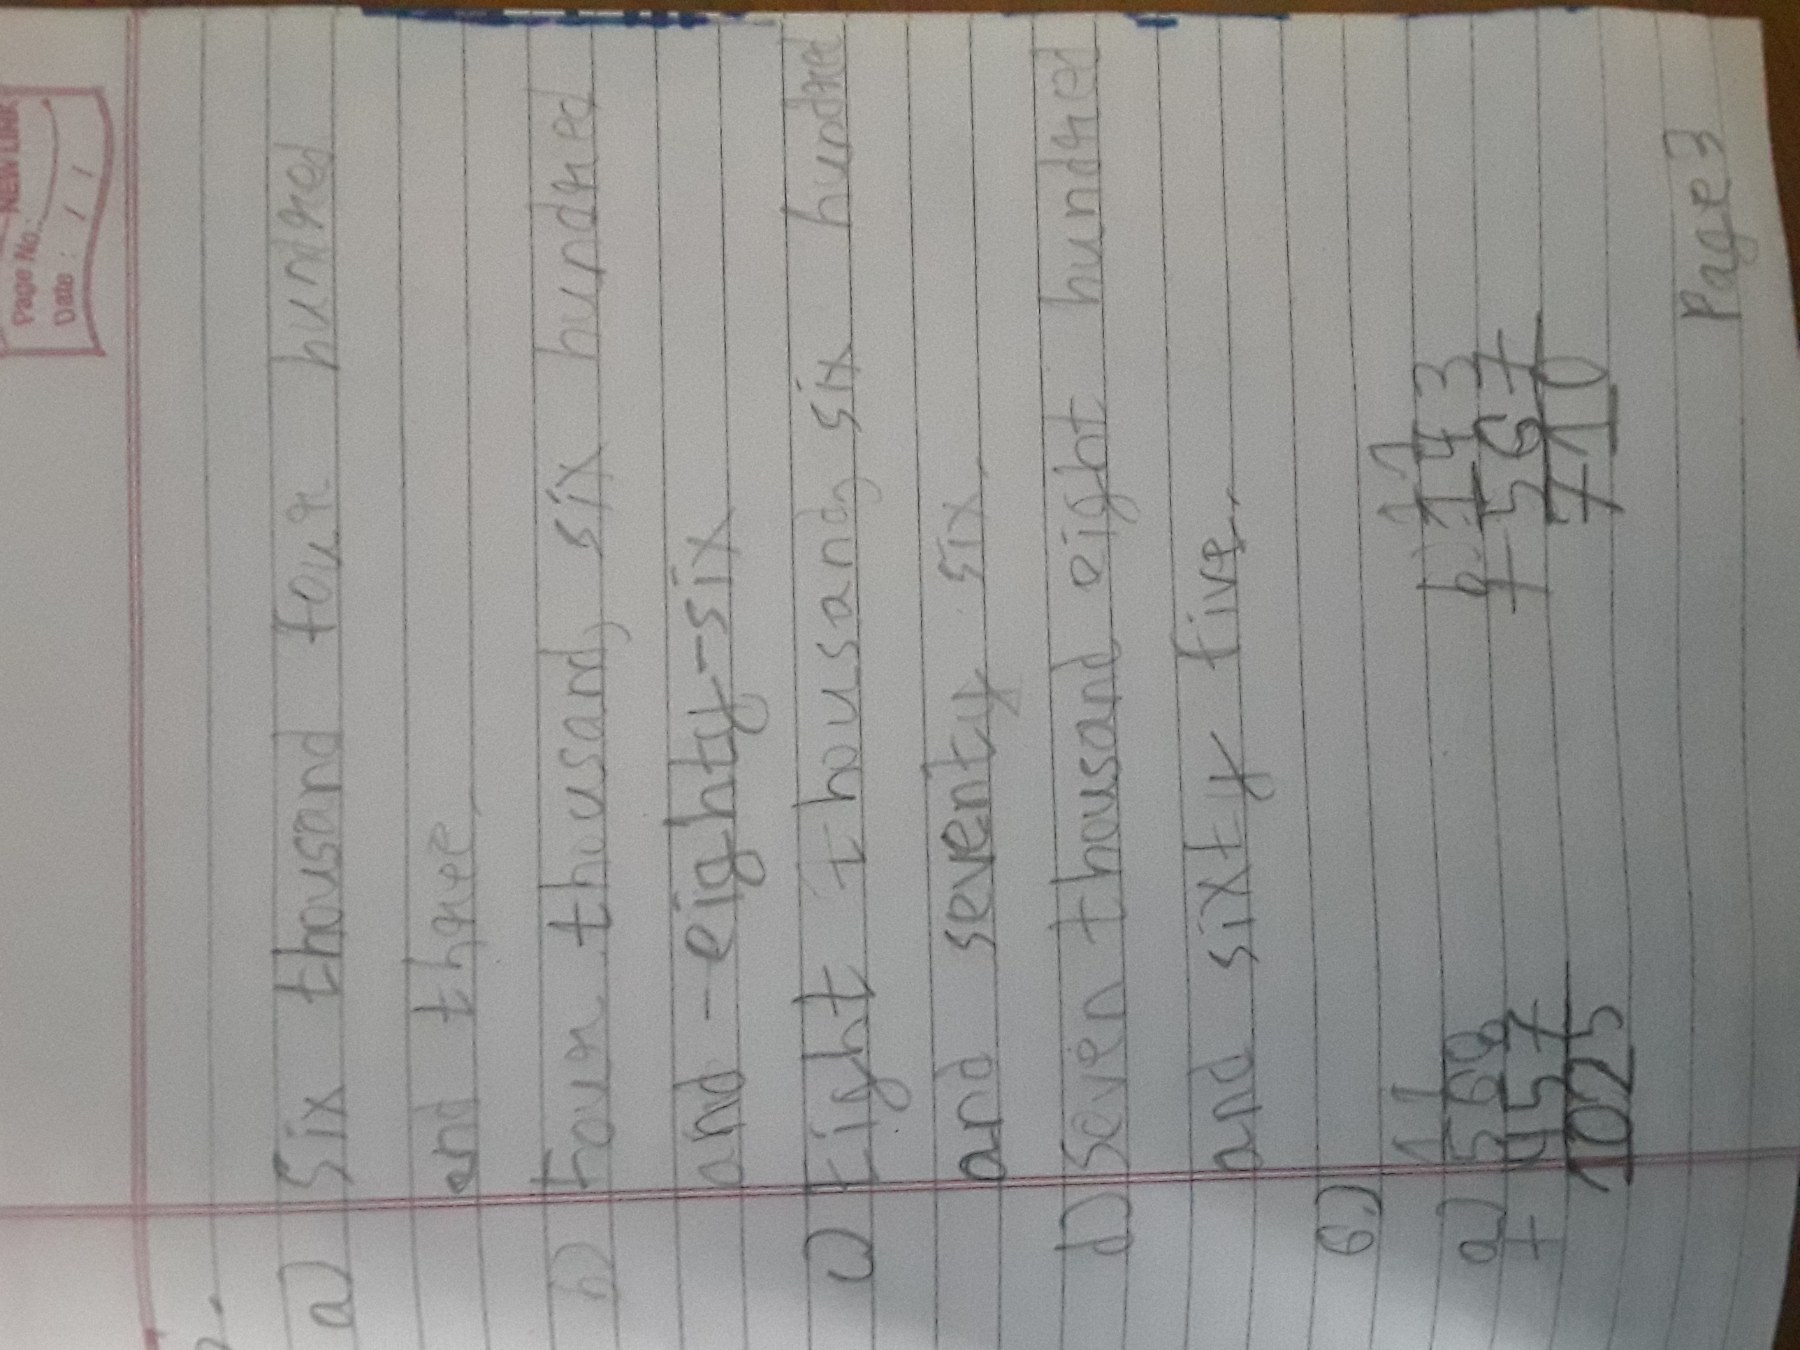 NEW LINK
Page No.:
Date : / /
a) Six thousand four hundred
and three.
b) Four thousand, six hundred
and -eighty-six
c) Eight thousand, six hundred
and seventy six.
d) Seven thousand eight hundred
and sixty five.
6.)
1 1 1 1
a) 568 b) 143
+ 457 + 567
1025 710
Page 3